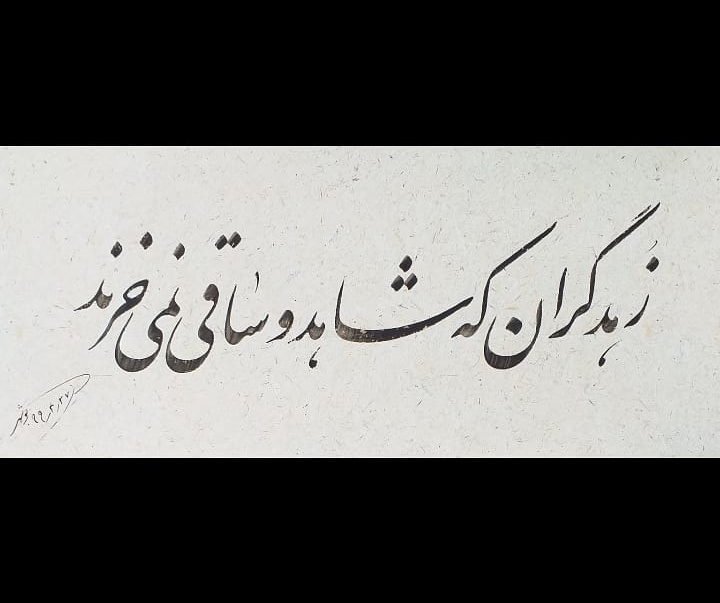 زُهد گران که شاهد و ساقی نمی‌خرند
۹۹،۲،۲۷